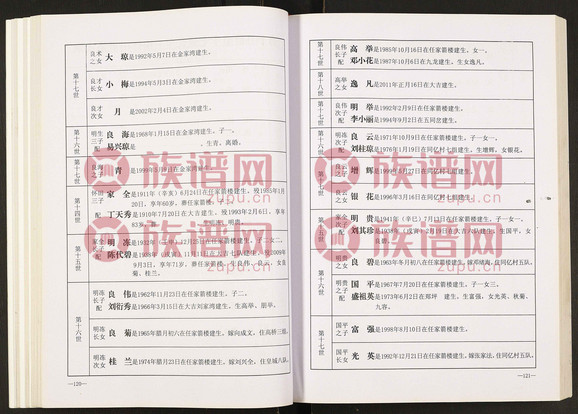 第十七世
良术
之女
大琼是1992年5月7日在金家湾建生。
良才
长女
小梅是1994年5月3日在金家湾建生。
良才
次女
月是2002年2月4日在金家湾建生。
第十六世
明
三子
配
良海是1968年1月15日在金家湾建生。子一。
易兴琼是 ，生青。离婚。
第十七世
之子
青
第十四世
怀田
三子
配
家全是1911年（辛亥）6月24日在任家箭楼建生，殁1955年1月
20日，享年60岁，葬任家箭楼。子二。
丁天秀是1910年7月20日在大古建生，殁1993年2月6日，享年
83岁
第十五世
家全
长子
配
明冻是1932年
陈代碧是1938年
9月3日，享年71岁，
菊、桂兰。
第十六世
明冻
长子
配
良伟是1962年11月23日在任家箭楼建生，子二。
刘衍秀是1966年3月15日在大古刘家湾建生，生高举、明举。
明冻
长女
良菊是1965年腊月初六在任家箭楼建生，嫁向成文，住高桥三组。
明冻
次女
桂兰是1974年腊月23日在任家箭楼建生，嫁刘兴全，住皇城六队。
—120—
第十七世
良伟
长子
配
高举是1985年10月16日在任家箭楼建生，女一。
邓小花是1987年10月6日在九龙建生，生女逸凡。
第十八世
高举
之女
逸凡是2011年正月16日在大古建生。
第十七世
良伟
次子
配
明举是1992年2月9日在任家箭楼建生。
李小丽是1994年9月2日在五同岔建生。
第十六世
配
良云是1971年10月9日在任家箭楼建生，子一女一。
刘桂琼是1971年10月19日在同亿村七组建生，生增辉、女银花。
增辉是1999年5月27日在同亿村七组建生。
银花是1996年3月16日在同亿村七组建生。
家全
次子
配
明贵是1941年（辛巳）7月13日在任家箭楼建生，子一女一。
刘其珍是1938年（戊寅）2月19日在大古六队建生，生国平、女
良碧。
第十六世
明贵
之女
良碧是1963年冬月初八在任家箭楼建生，嫁邓绪海，住同亿村五队。
明贵
之子
配
国平是1967年7月20日在任家箭楼建生，子一女三。
盛祖英是1973年6月2日在郑坪建生，生富强，女光英、秋菊、
九蓉。
第十七世
国平
之子
富强是1998年8月10日在任家箭楼建生。
国平
长女
光英是1992年12月21日在任家箭楼建生，嫁张家法，住同亿村五队。
—121—
族谱网
zupu.cn
族谱网
zupu.cn
族谱网
zupu.cn
族谱网
zupu.cn